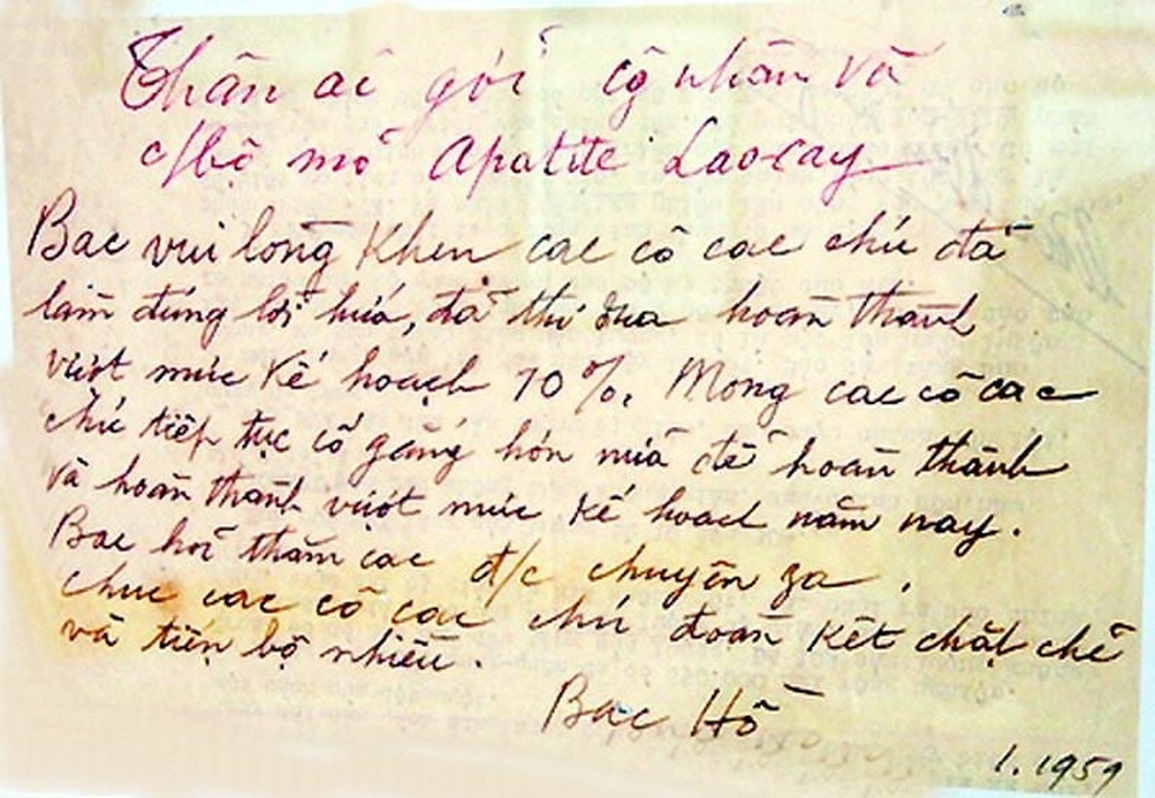 Thân ái gửi cg nhân và
c/bộ mỏ Apatite Lao-cay
Bac vui lòng khen cac cô cac chú đã
làm đúng lời hứa, đã thi đua hoàn thành
vượt mức kế hoạch 10%. Mong cac cô cac
chú tiếp tục cố gắng hơn nữa để hoàn thành
và hoàn thành vượt mức kế hoạch năm nay.
Bac hỏi thăm cac đ/c chuyên za.
chuc cac cô cac chú đoàn kết chặt chẽ
và tiến bộ nhiều.
Bac Hồ
1.1959